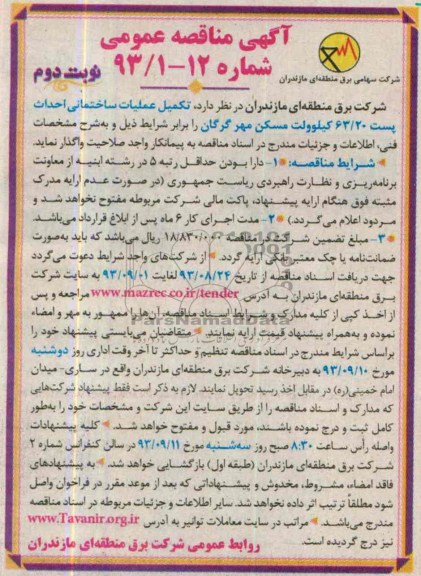 آگهی مناقصه عمومی
شماره ۱۲-۹۳/۱
نوبت دوم
شرکت سهامی برق منطقه‌ای مازندران
شرکت برق منطقه‌ای مازندران در نظر دارد، تکمیل عملیات ساختمانی احداث
پست ۶۳/۲۰ کیلوولت مسکن مهر گرگان را برابر شرایط ذیل و به‌شرح مشخصات
فنی، اطلاعات و جزئیات مندرج در اسناد مناقصه به پیمانکار واجد صلاحیت واگذار نماید.
شرایط مناقصه: ۱- دارا بودن حداقل رتبه ۵ در رشته ابنیه از معاونت
برنامه‌ریزی و نظارت راهبردی ریاست جمهوری (در صورت عدم ارایه مدرک
مثبته فوق هنگام ارایه پیشنهاد، پاکت مالی شرکت مربوطه مفتوح نخواهد شد و
مردود اعلام می‌گردد.) ۲- مدت اجرای کار ۶ ماه پس از ابلاغ قرارداد می‌باشد.
۳- مبلغ تضمین شرکت در مناقصه ریال می‌باشد که باید به‌صورت
ضمانت‌نامه یا چک معتبر بانکی ارایه گردد. از شرکت‌های واجد شرایط دعوت می‌گردد
جهت دریافت اسناد مناقصه از تاریخ ۹۳/۰۸/۲۴ لغایت ۹۳/۰۹/۰۱ به سایت شرکت
برق منطقه‌ای مازندران به آدرس www.mazrec.co.ir/tender مراجعه و پس
از اخذ کپی از کلیه مدارک و شرایط اسناد مناقصه، آن‌ها را ممهور به مهر و امضاء
نموده و به‌همراه پیشنهاد قیمت ارایه نمایند. متقاضیان می‌بایستی پیشنهاد خود را
براساس شرایط مندرج در اسناد مناقصه تنظیم و حداکثر تا آخر وقت اداری روز دوشنبه
مورخ ۹۳/۰۹/۱۰ به دبیرخانه شرکت برق منطقه‌ای مازندران واقع در ساری- میدان
امام خمینی(ره) در مقابل اخذ رسید تحویل نمایند. لازم به ذکر است فقط پیشنهاد شرکت‌هایی
که مدارک و اسناد مناقصه را از طریق سایت این شرکت و مشخصات خود را به‌طور
کامل ثبت و درج نموده باشند، مورد قبول و مفتوح خواهد شد. کلیه پیشنهادات
واصله رأس ساعت ۸:۳۰ صبح روز سه‌شنبه مورخ ۹۳/۰۹/۱۱ در سالن کنفرانس شماره ۲
شرکت برق منطقه‌ای مازندران (طبقه اول) بازگشایی خواهد شد. به پیشنهادهای
فاقد امضاء، مشروط، مخدوش و پیشنهاداتی که بعد از موعد مقرر در فراخوان واصل
شود مطلقاً ترتیب اثر داده نخواهد شد. سایر اطلاعات و جزئیات مربوطه در اسناد مناقصه
مندرج می‌باشد. مراتب در سایت معاملات توانیر به آدرس www.Tavanir.org.ir
نیز درج گردیده است.
روابط عمومی شرکت برق منطقه‌ای مازندران
ParsNamadData